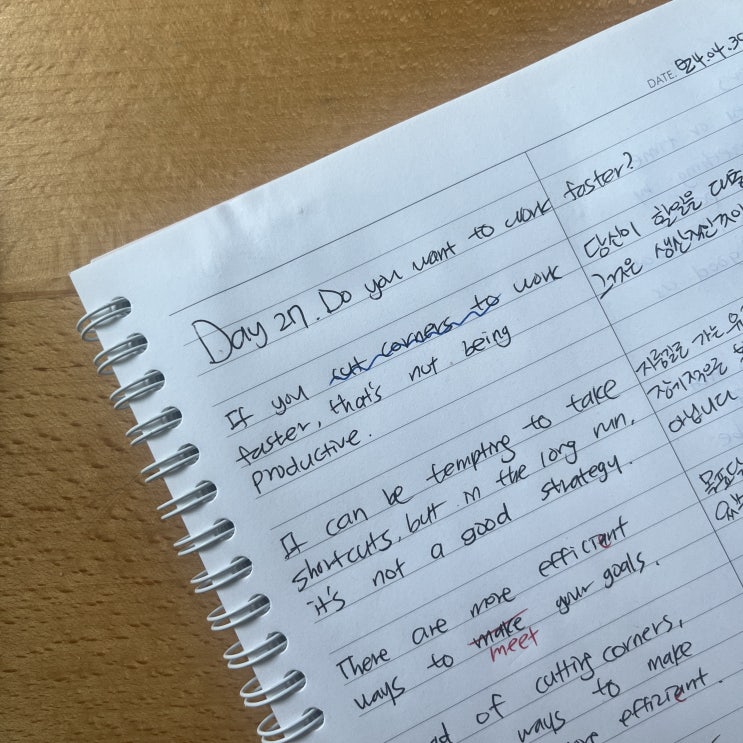 DATE. 24.04.30
Day 27. Do you want to work faster?
If you cut corners to work
faster, that's not being
productive.
It can be tempting to take
shortcuts, but in the long run,
it's not a good strategy.
There are more efficient
ways to make your goals.
meet
of cutting corners,
ways to make
efficient.
당신이 할일을
그것은
지름길을 가는
장기적으로
아닙니다